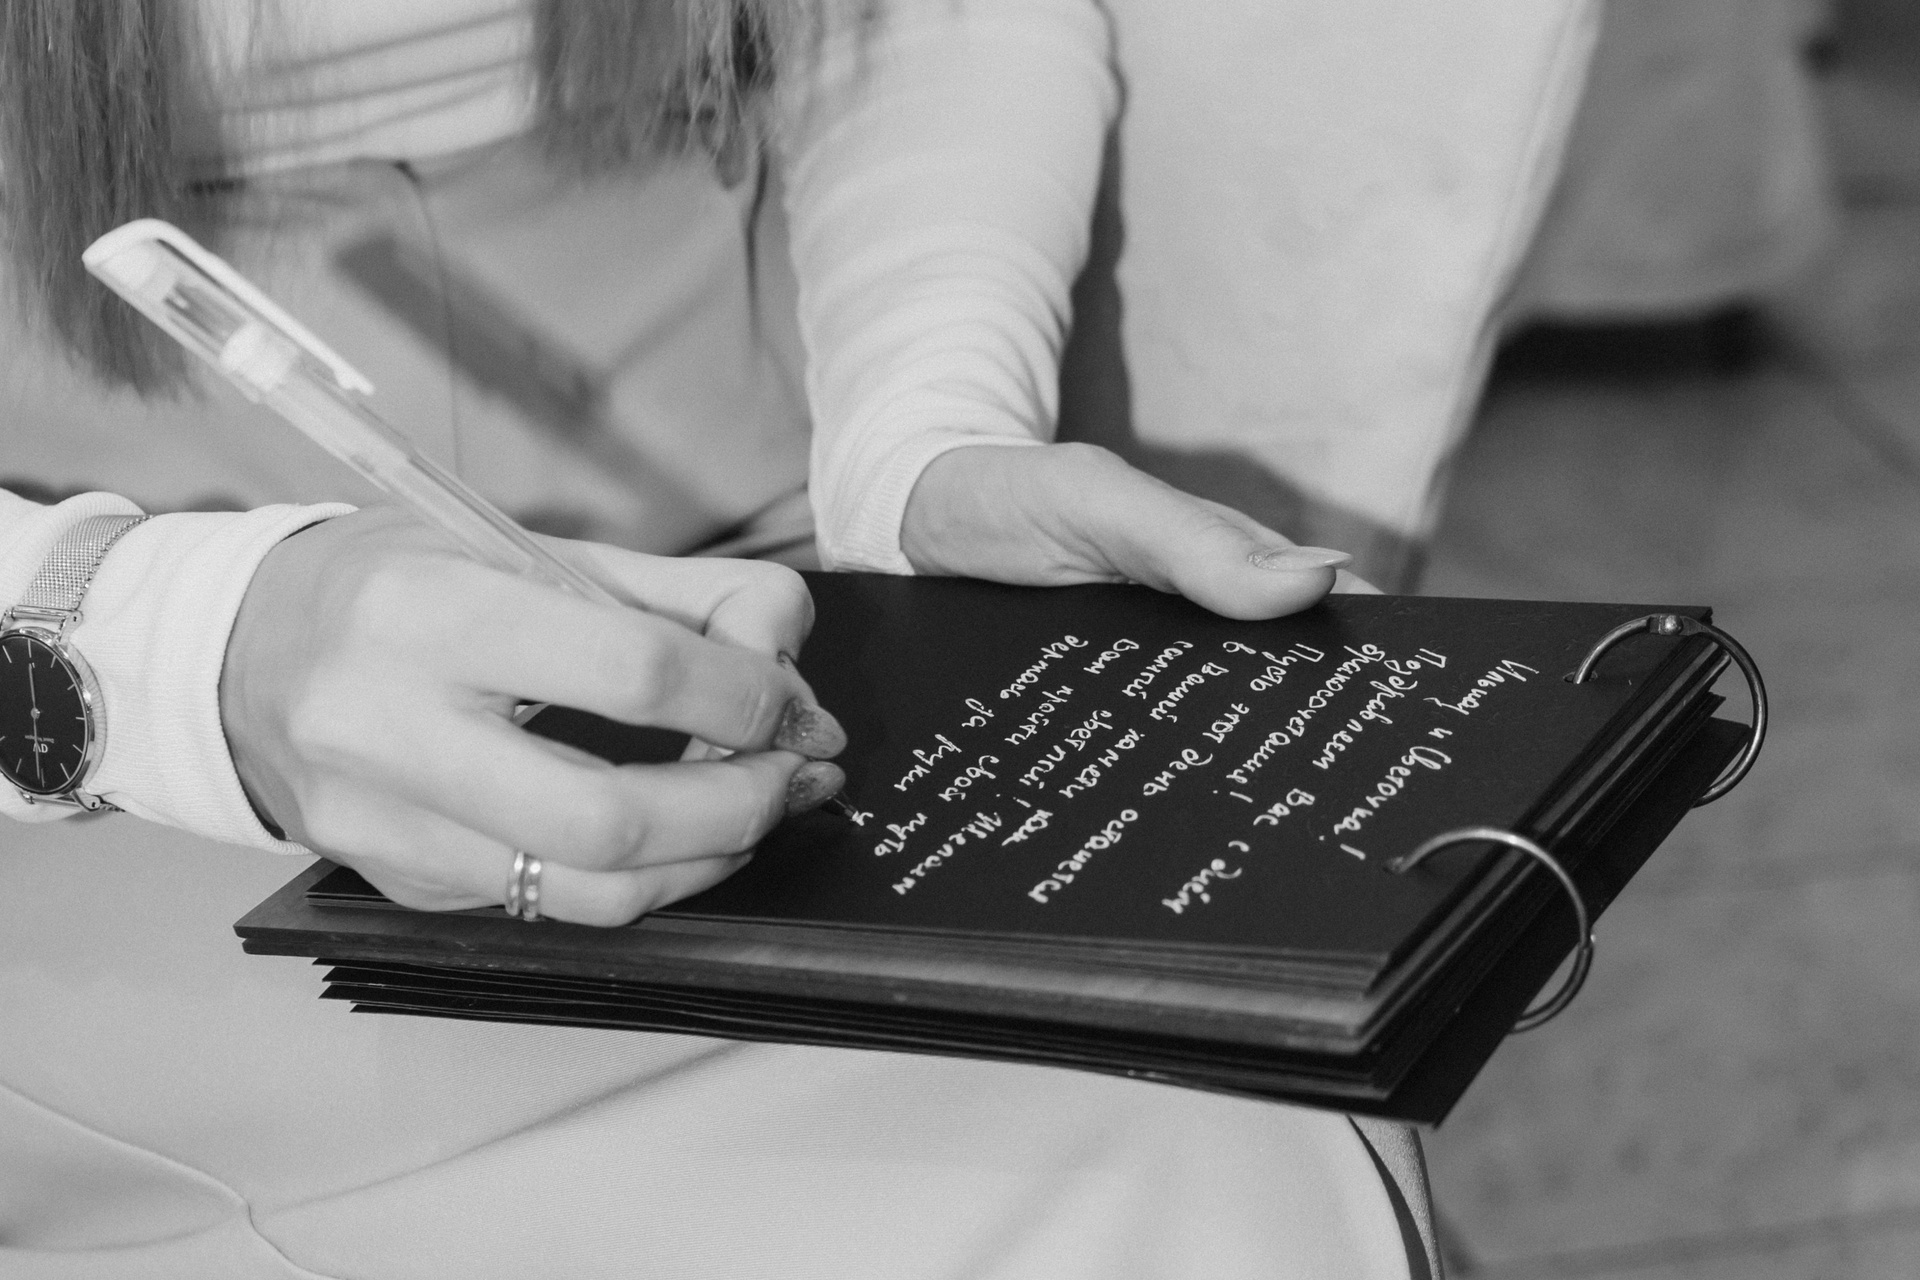 Илюшу и Светочка!
Поздравляем Вас с Днём
бракосочетания!
Пусть этот день останется
в Вашей памяти как
самый светлый! Желаем
Вам пройти свой путь
держась за руки